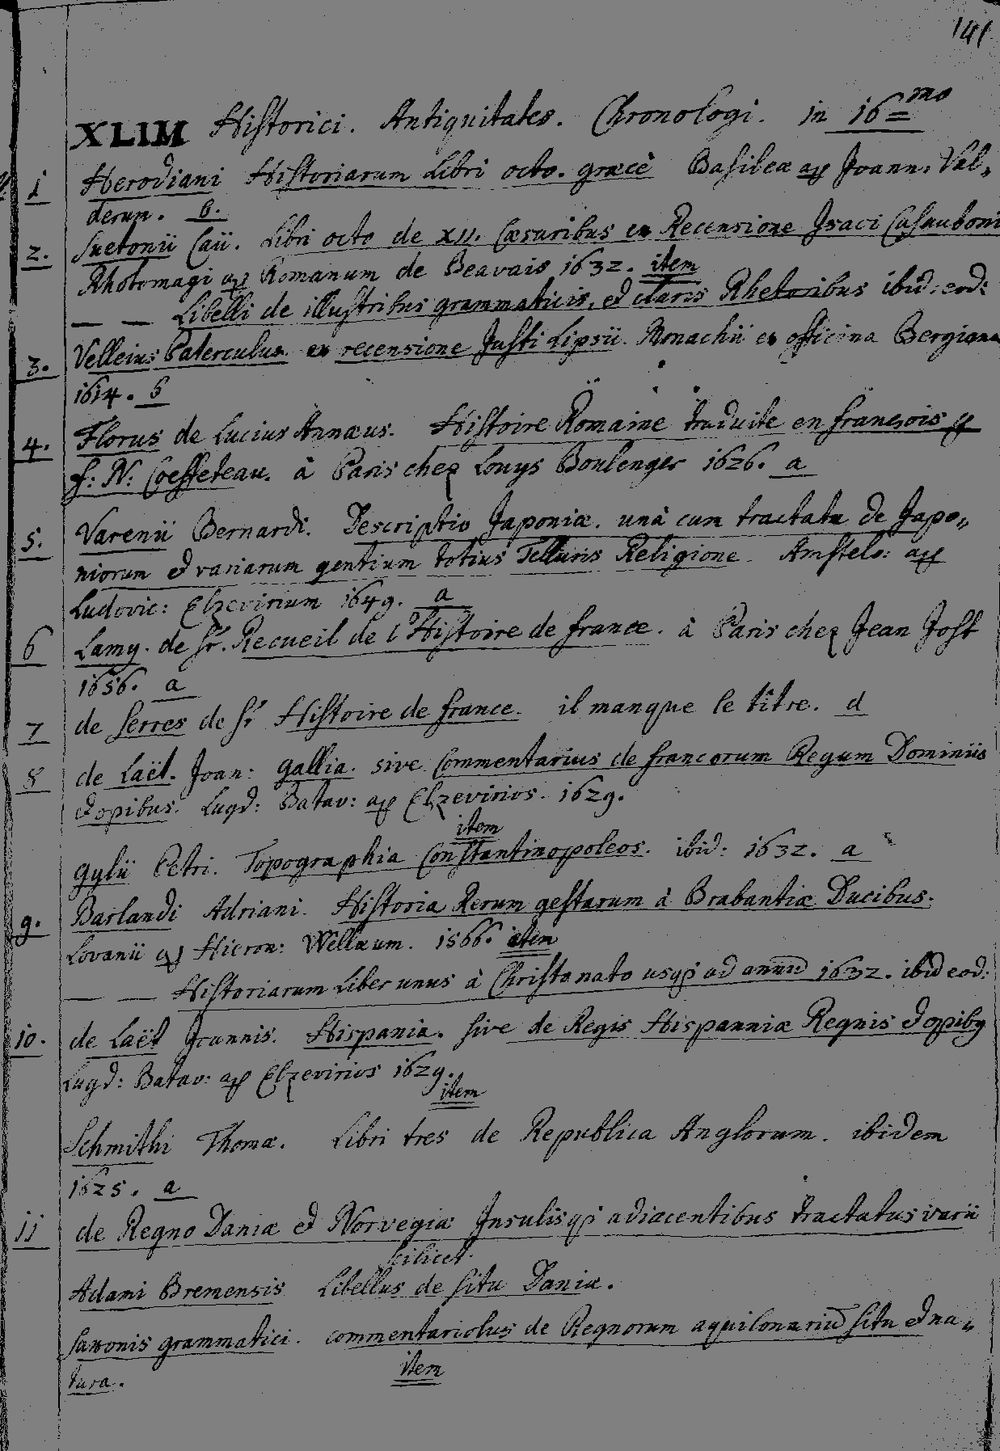 141
XLIII Historici. Antiquitates. Chronologi. in 16=mo
1 Herodiani Historiarum Libri octo. græcè Basileæ ap Joann. Val„
derum. 6.
2. Suetonii Caii. Libri octo de XII. Cæsaribus ex Recensione Isaci Casauboni
Rhotomagi ap Romanum de Beavais 1632. item
— — Libelli de illustribus grammaticis, et claris Rhetoribus ibid: eod:
3. Velleius Paterculus ex recensione Justi Lipsii. Monachii ex officina Bergiana
1614. 6
4. Florus de Lucius Annæus. Histoire Romaine traduite en françois p
f: N: Coeffeteau. à Paris chez Louys Boulenger 1626. a
5. Varenii Bernardi. Descriptio Japoniæ. unà cum tractatu de Japo„
niorum et variarum gentium totius Telluris Religione. Amstelo: ap
Ludovic: Elzevirium 1649. a
6 Lamy. de Sr. Recueil de l'Histoire de france. à Paris chez Jean Jost
1656. a
7 de Serres de Sr Histoire de france. il manque le titre. d
8 de Laët. Joan: Gallia. sive Commentarius de francorum Regum Dominiis
et opibus. Lugd: Batav: ap Elzevirios. 1629.
item
Gylii Petri. Topographia Constantinopoleos. ibid: 1632. a
9. Barlandi Adriani. Historia Rerum gestarum à Brabantiæ Ducibus.
Lovanii ap Hieron: Wellæum. 1566. item
— — Historiarum Liber unus à Christo nato usq ad annū 1632. ibid eod:
10. de Laët Joannis. Hispania. sive de Regis Hispanniæ Regnis et opibq
Lugd: Batav: ap Elzevirios 1629.
item
Schmithi Thomæ. Libri tres de Republica Anglorum. ibidem
1625. a
11 de Regno Daniæ et Norvegiæ Insulisq adiacentibus tractatus varii
scilicet.
Adami Bremensis Libellus de situ Daniæ.
Saxonis grammatici. commentariolus de Regnorum aquilonariū situ et na„
tura. item